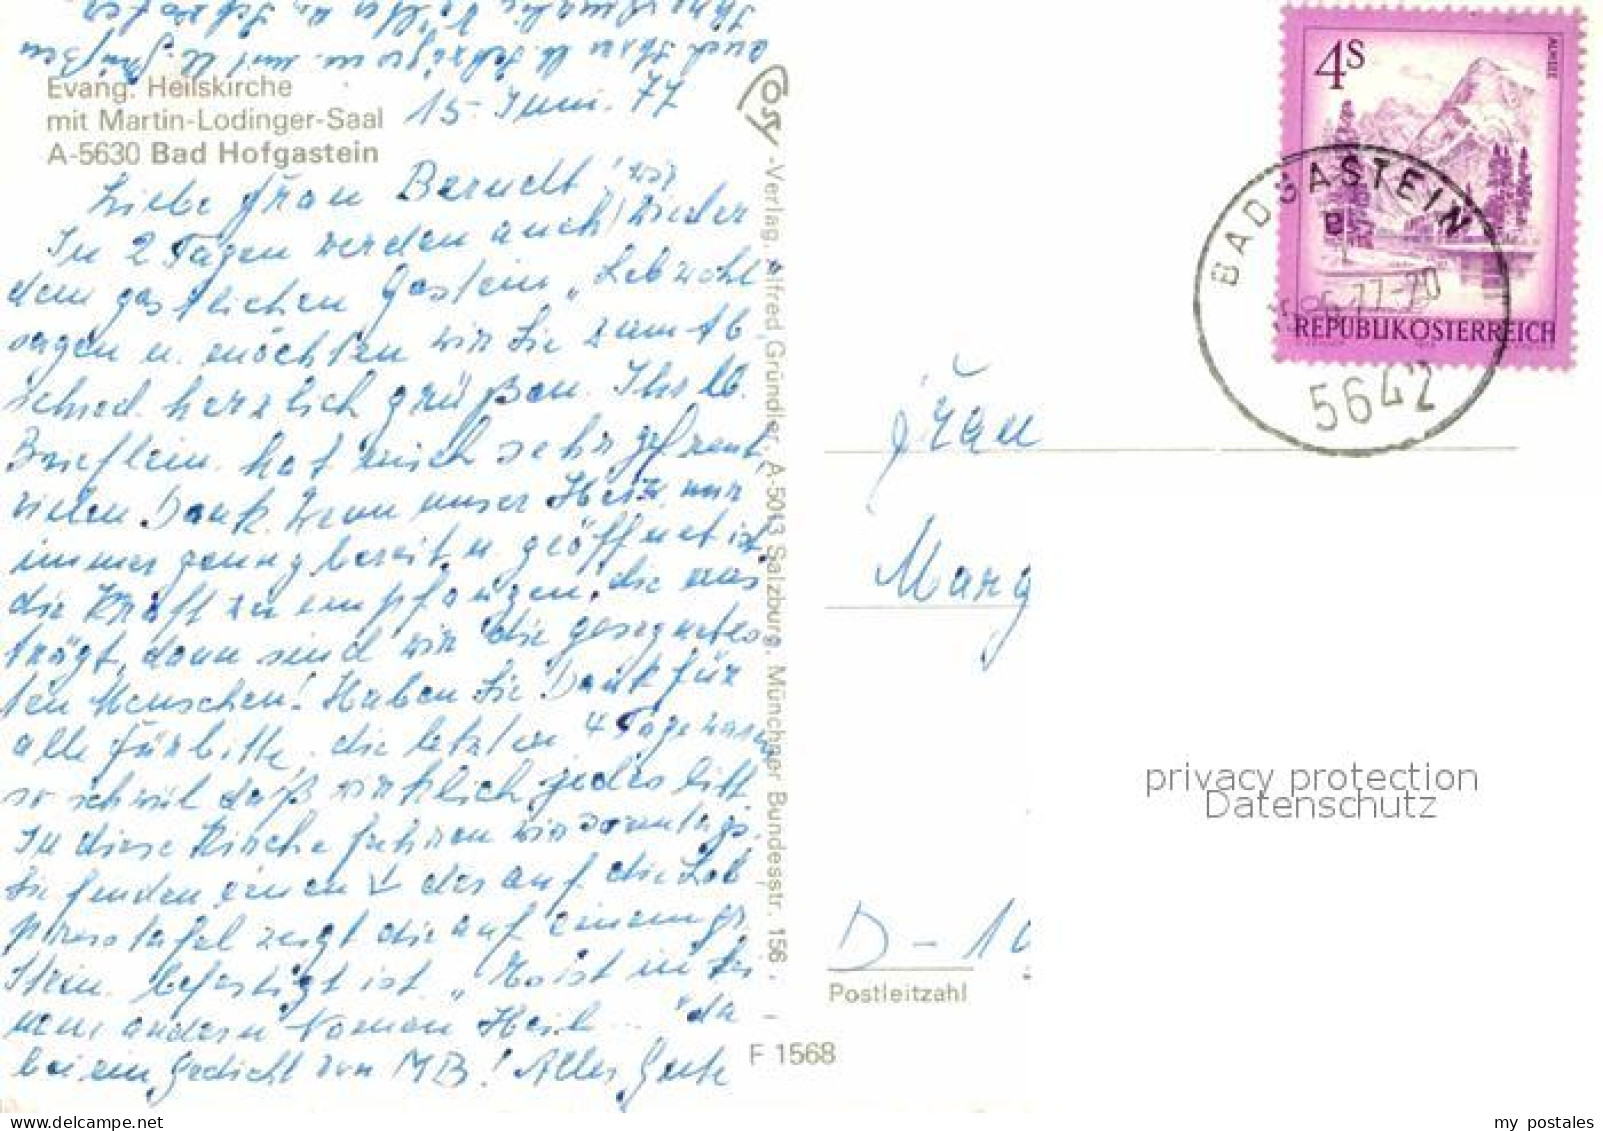 Evang. Heilskirche
mit Martin-Lodinger-Saal
A-5630 Bad Hofgastein
15. Juni. 77
Liebe Frau Berndt!
In 2 Tagen werden auch wir wieder
dem gastlichen Gastein „Lebwohl
sagen u. möchten wir Sie zum Ab
schied herzlich grüßen. Ihr lb.
Brieflein hat mich sehr gefreut,
vielen Dank. Wenn unser Herz nur
immer genug bereit u. geöffnet ist
die Kraft zu empfangen, die uns
trägt, dann sind wir die gesegnetes
ten Menschen! Haben Sie Dank für
alle Fürbitte, die letzten 4 Tage waren
so schwül daß wirklich jedes litt.
In diese Kirche fuhren wir sonntags.
Sie finden einen ↓ der auf die Lob
preistafel zeigt die auf einem gr.
Stein befestigt ist. „Es ist in kei
nem andern Namen Heil... " da
bei ein Gedicht von MB! Alles Gute
auch Ihrer lb. u. Grüßen
Cosy-Verlag, Alfred Gründler, A-5013 Salzburg, Münchner Bundesstr. 156
F 1568
4S
ALMSEE
REPUBLIK ÖSTERREICH
BADGASTEIN
77-20
5642
Frau
Marg
D-10
Postleitzahl
privacy protection
Datenschutz
my postales